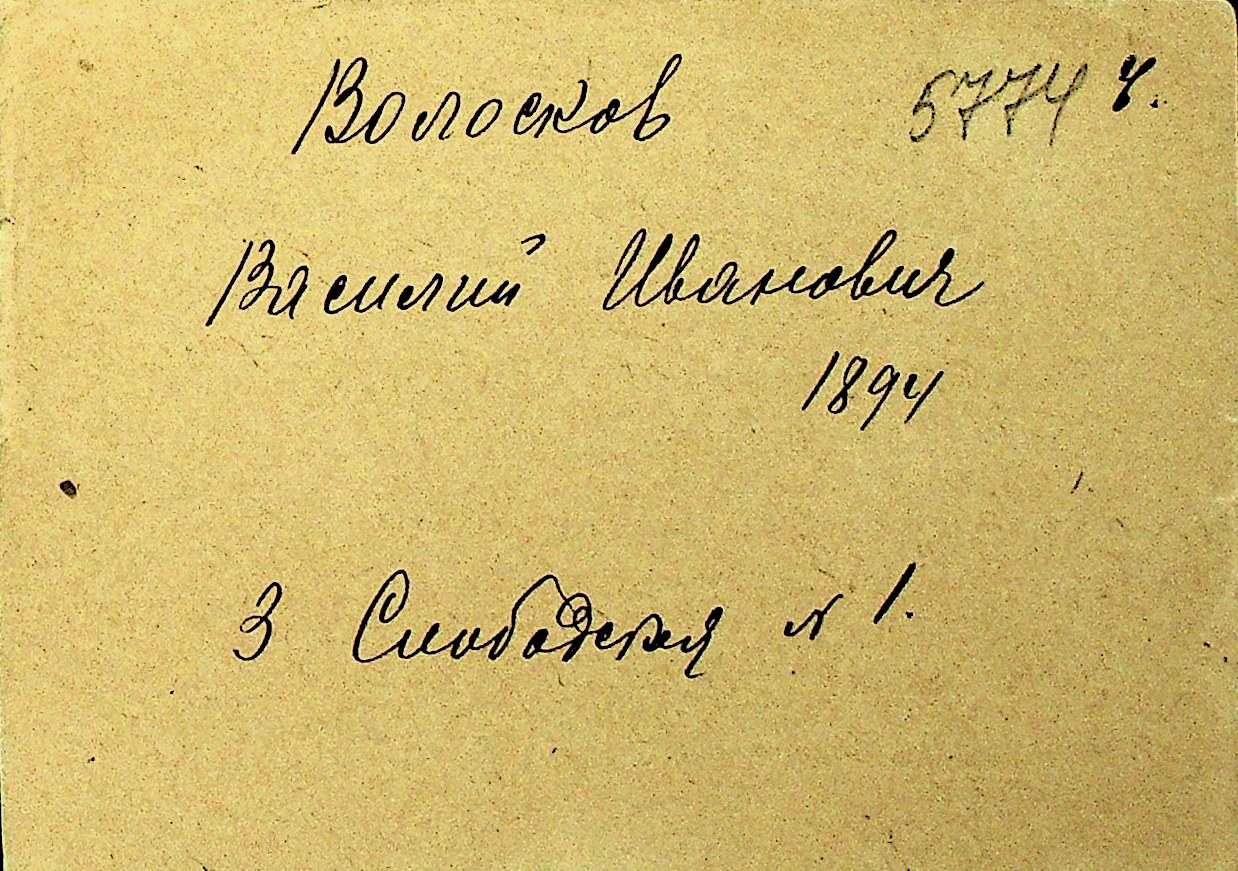 Волосков 5774 ч.
Василий Иванович
1894
3 Слободская № 1.